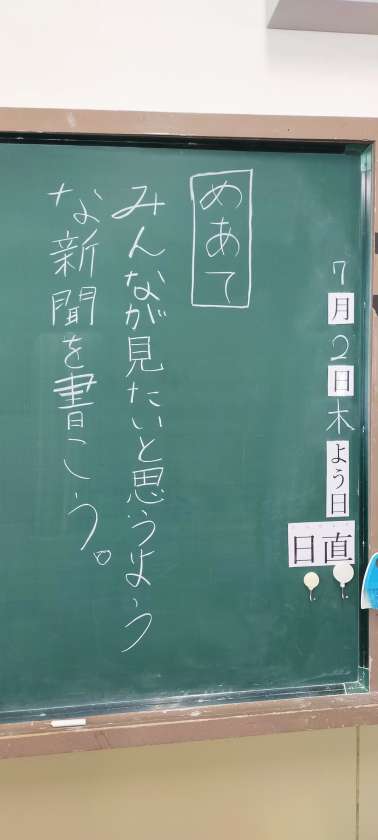 7月2日木よう日
日直
めあて
みんなが見たいと思うよう
な新聞を書こう。